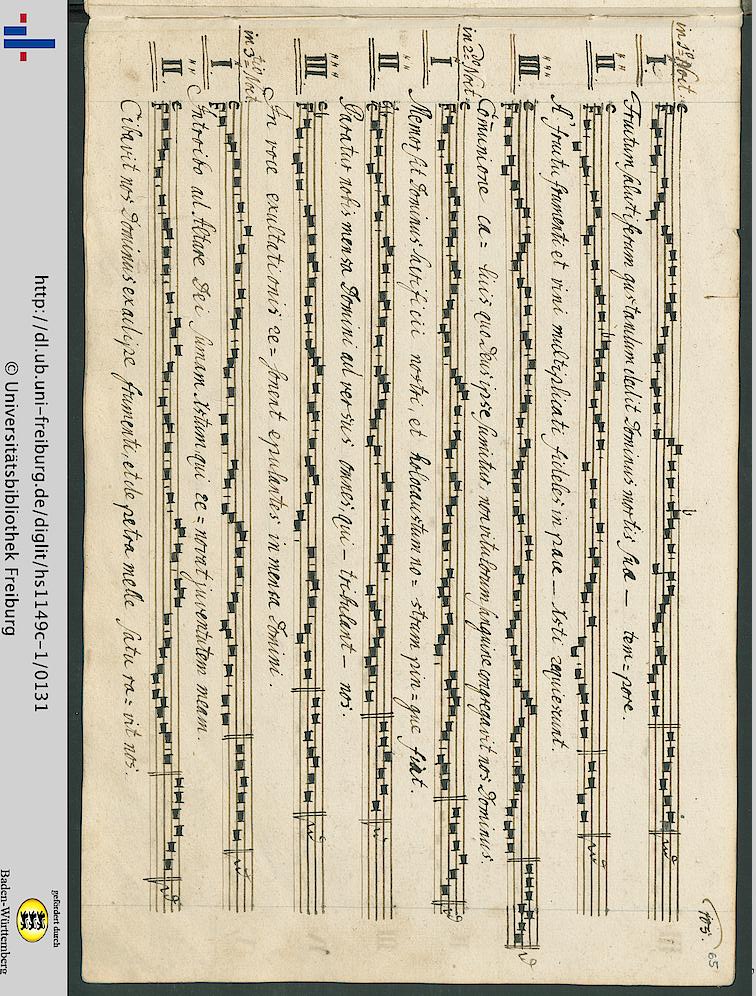 in 1º Noct:
I. Fructum salutiferum gustandum dedit Dominus mortis suæ — tem=pore.
II. A fructu frumenti et vini multiplicati fideles in pace — Xsti requiescunt.
III. Com̃unione ca=licis quo Deus ipse sumitur non vitulorum sanguine congregavit nos Dominus.
in 2dº Noct:
I. Memor sit Dominus sacrificii nostri, et holocaustum no=strum pin=gue fiat.
II. Paratur nobis mensa Domini adversus omnes qui — tribulant — nos.
III. In voce exultationis re=sonent epulantes in mensa Domini.
in 3tiô Noct
I. Introibo ad Altare Dei sumam Xstum qui re=novat juventutem meam.
II. Cibavit nos Dominus ex adipe frumenti, et de petra melle satu ra=vit nos.
103.
65
http://dl.ub.uni-freiburg.de/diglit/hs1149c-1/0131
© Universitätsbibliothek Freiburg
gefördert durch
Baden-Württemberg